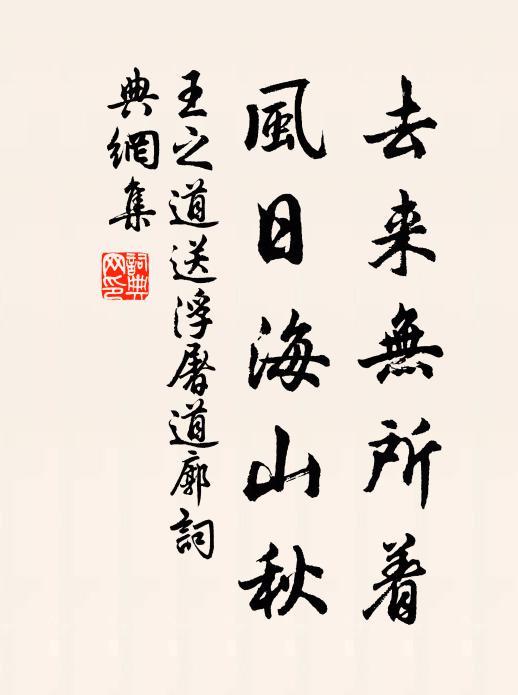 去来無所着
風日海山秋
王之道送浮屠道廓詞
典網集
詞典
网印